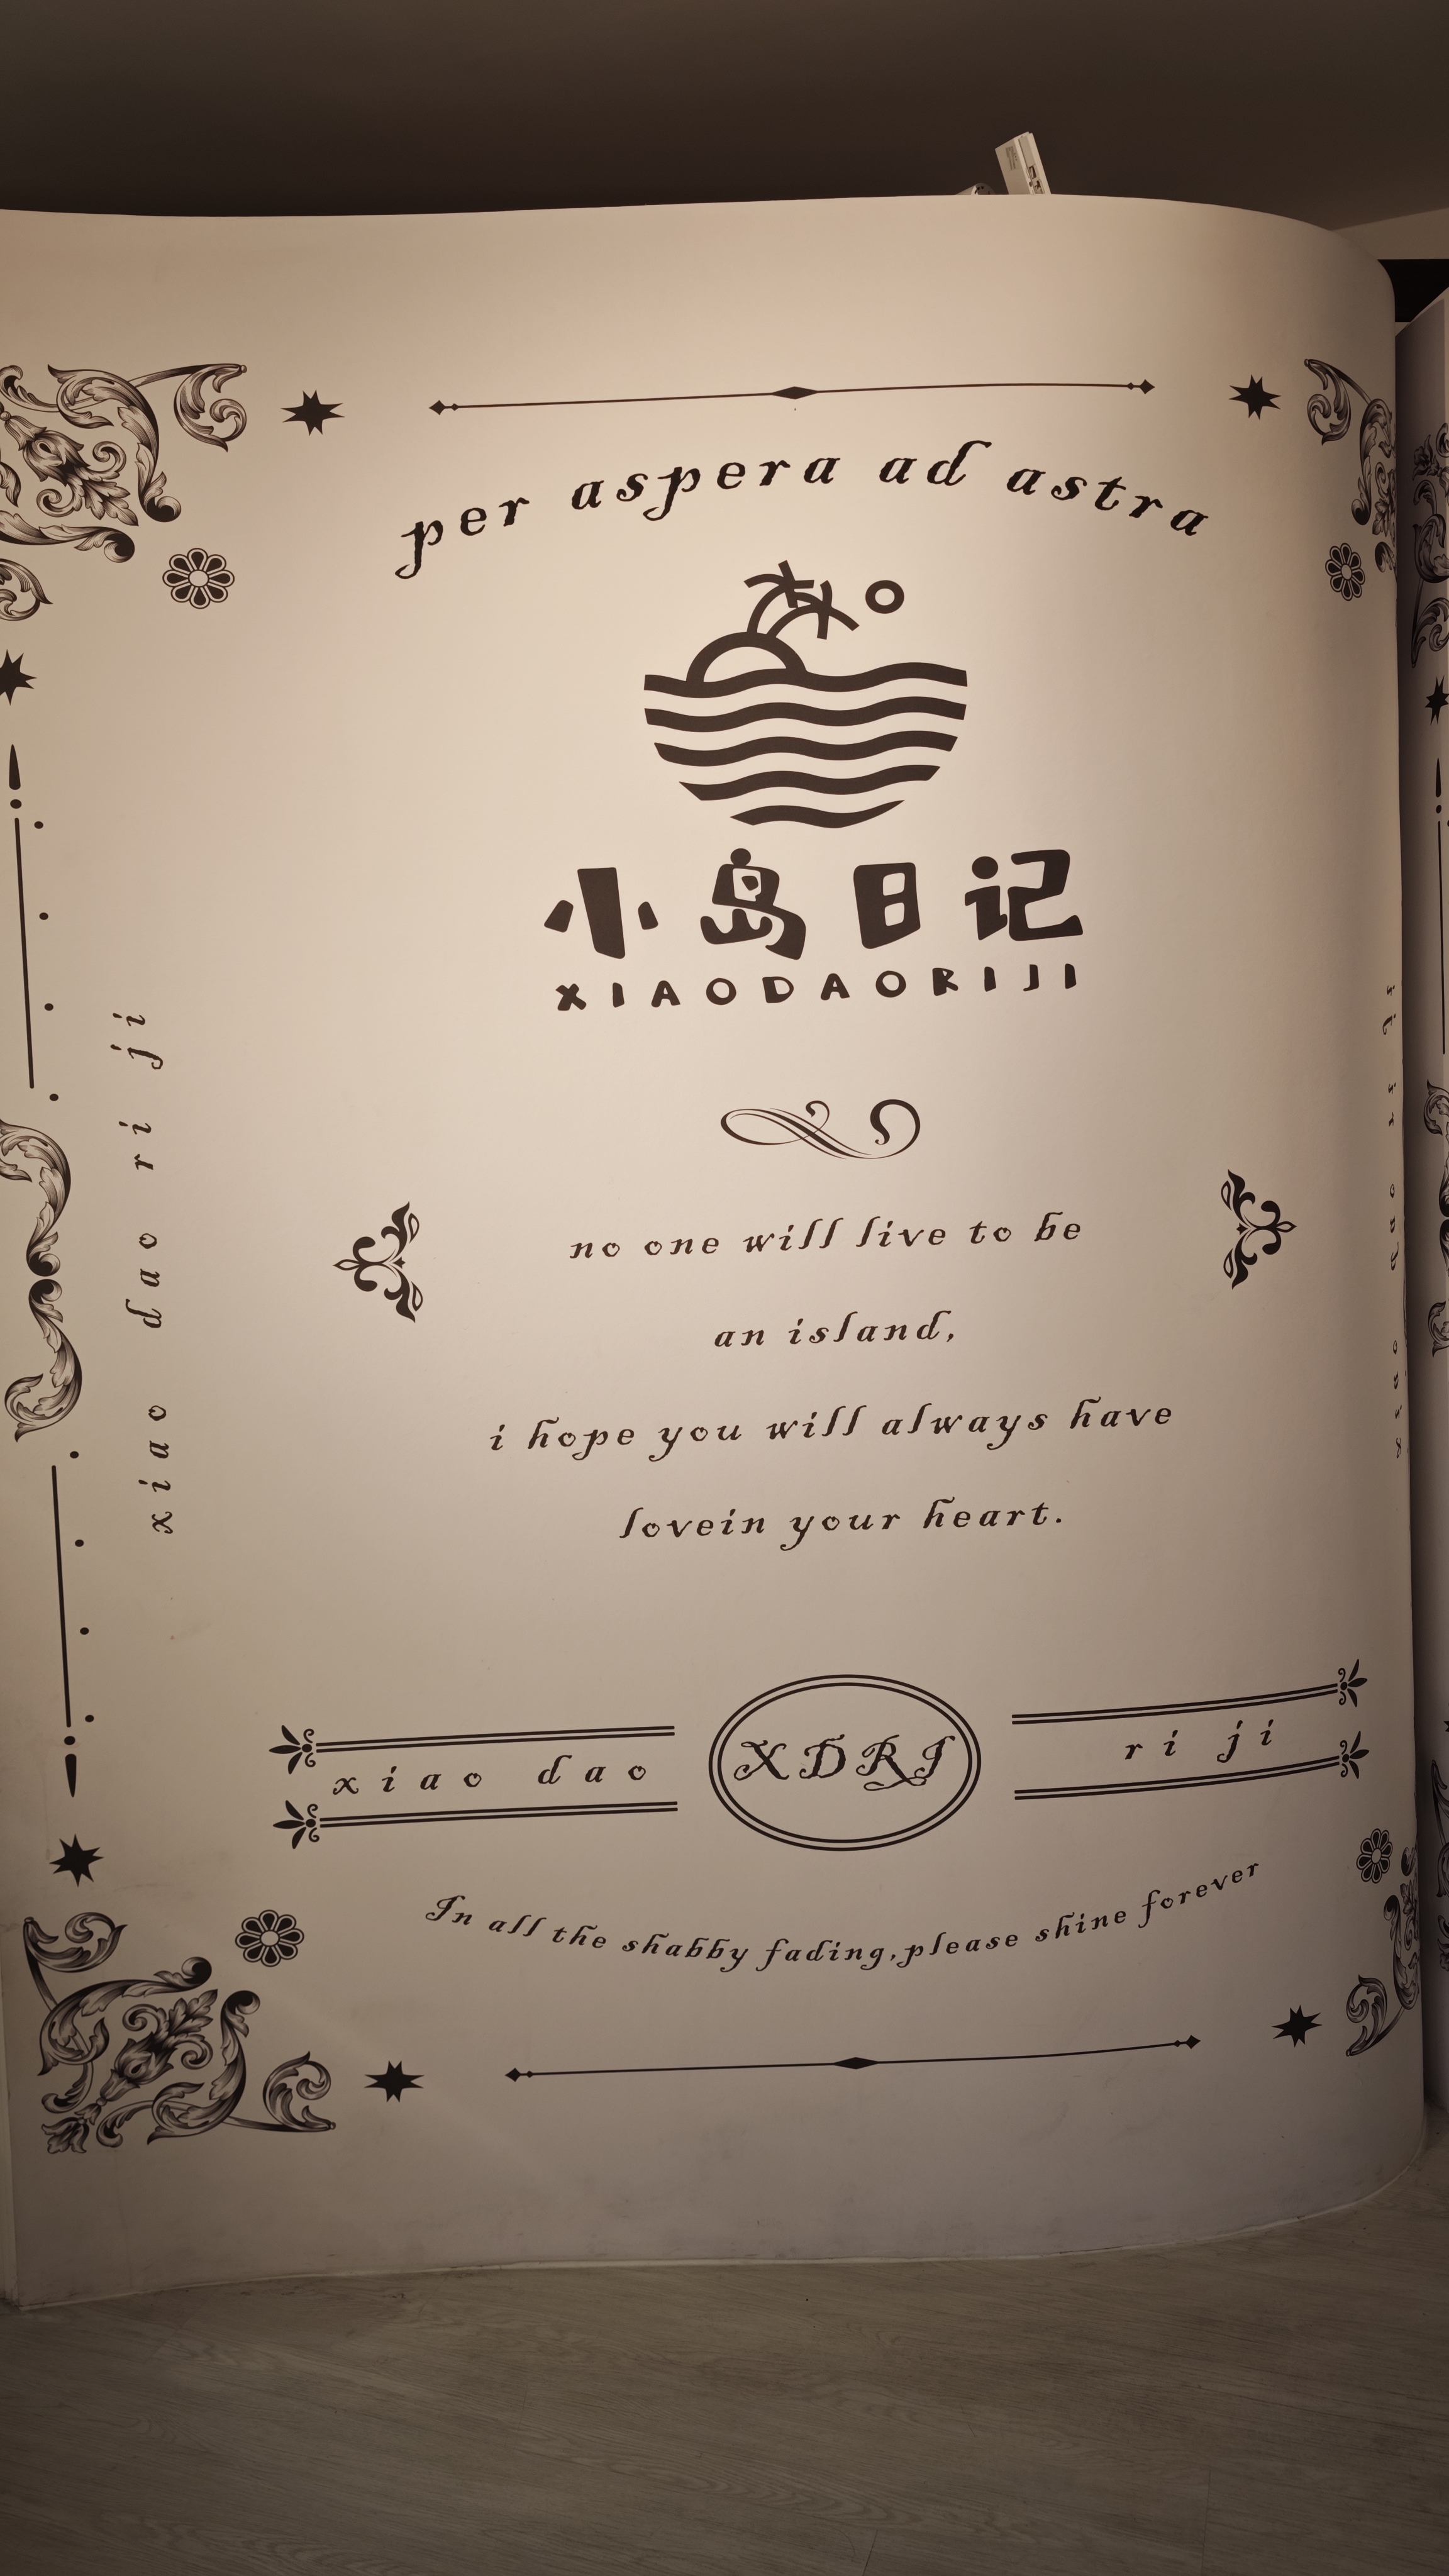 per aspera ad astra
小岛日记
XIAODAORIJI
xiao dao ri ji
no one will live to be
an island,
i hope you will always have
lovein your heart.
xiao dao
XDRJ
ri ji
In all the shabby fading,please shine forever